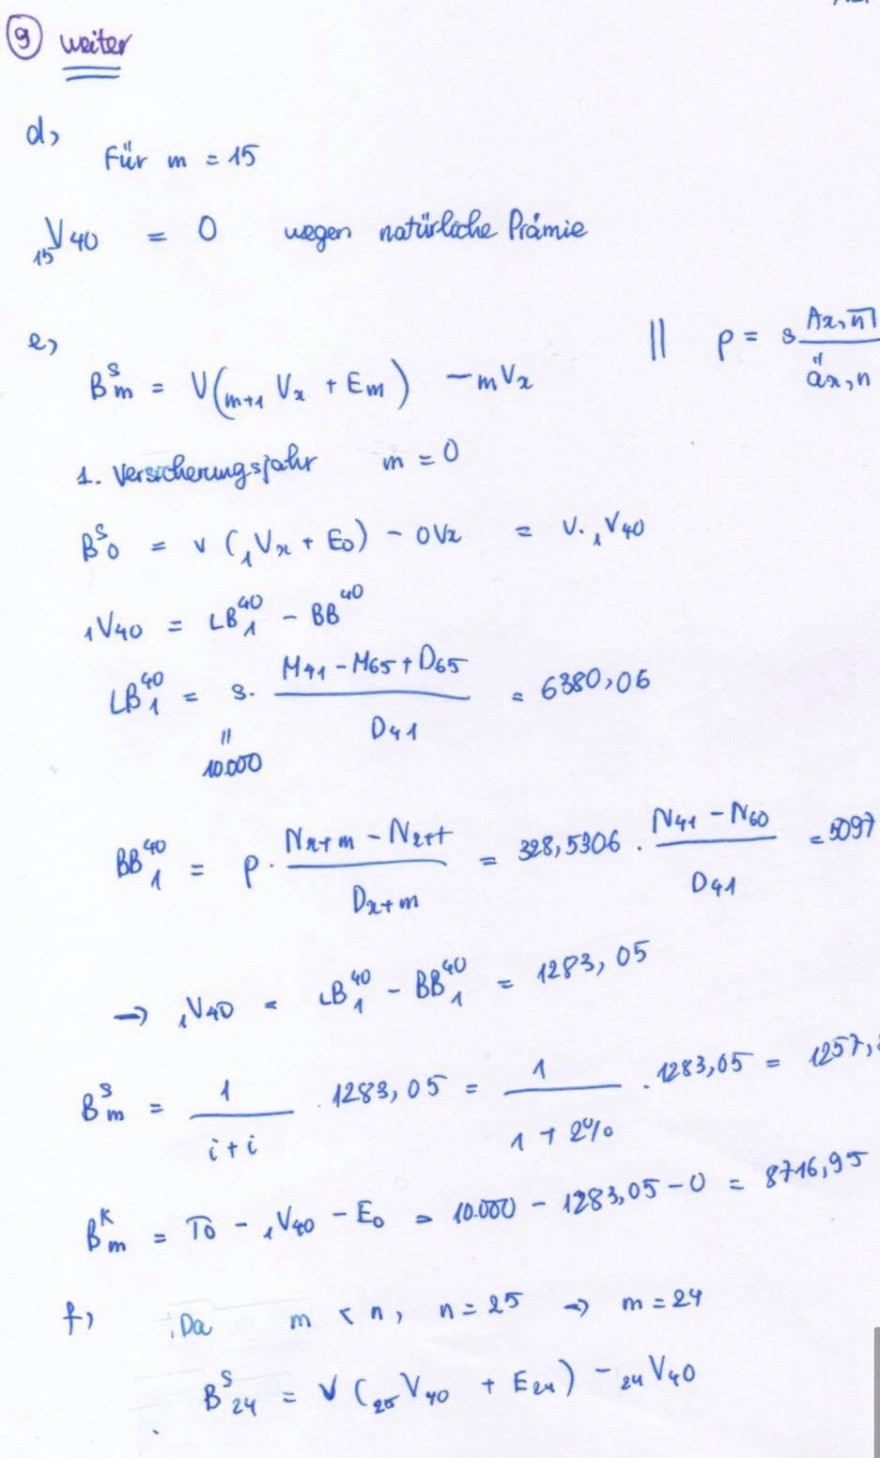 ⑨ weiter
d, Für m = 15
₁₅V₄₀ = 0 wegen natürliche Prämie
e, || p = s Ax,n̅| / äx,n
Bˢm = V(m+1 Vx + Em) - mVx
1. Versicherungsjahr m = 0
Bˢ₀ = v (₁Vx + E₀) - 0Vx = V. ₁V40
₁V40 = LB₁⁴⁰ - BB⁴⁰
LB₁⁴⁰ = s. M41 - M65 + D65 / D41 = 6380,06
"
10.000
BB₁⁴⁰ = p · Nx+m - Nx+t / Dx+m = 328,5306 . N41 - N60 / D41 = 5097
→ ₁V40 = LB₁⁴⁰ - BB₁⁴⁰ = 1283,05
Bˢm = 1 / i+i . 1283,05 = 1 / 1 + 2% . 1283,05 = 1257,
Bᴷm = T0 - ₁V40 - E₀ = 10.000 - 1283,05 - 0 = 8716,95
f, Da m < n, n = 25 → m = 24
Bˢ₂₄ = V (₂₅V₄₀ + E₂₄) - ₂₄V₄₀